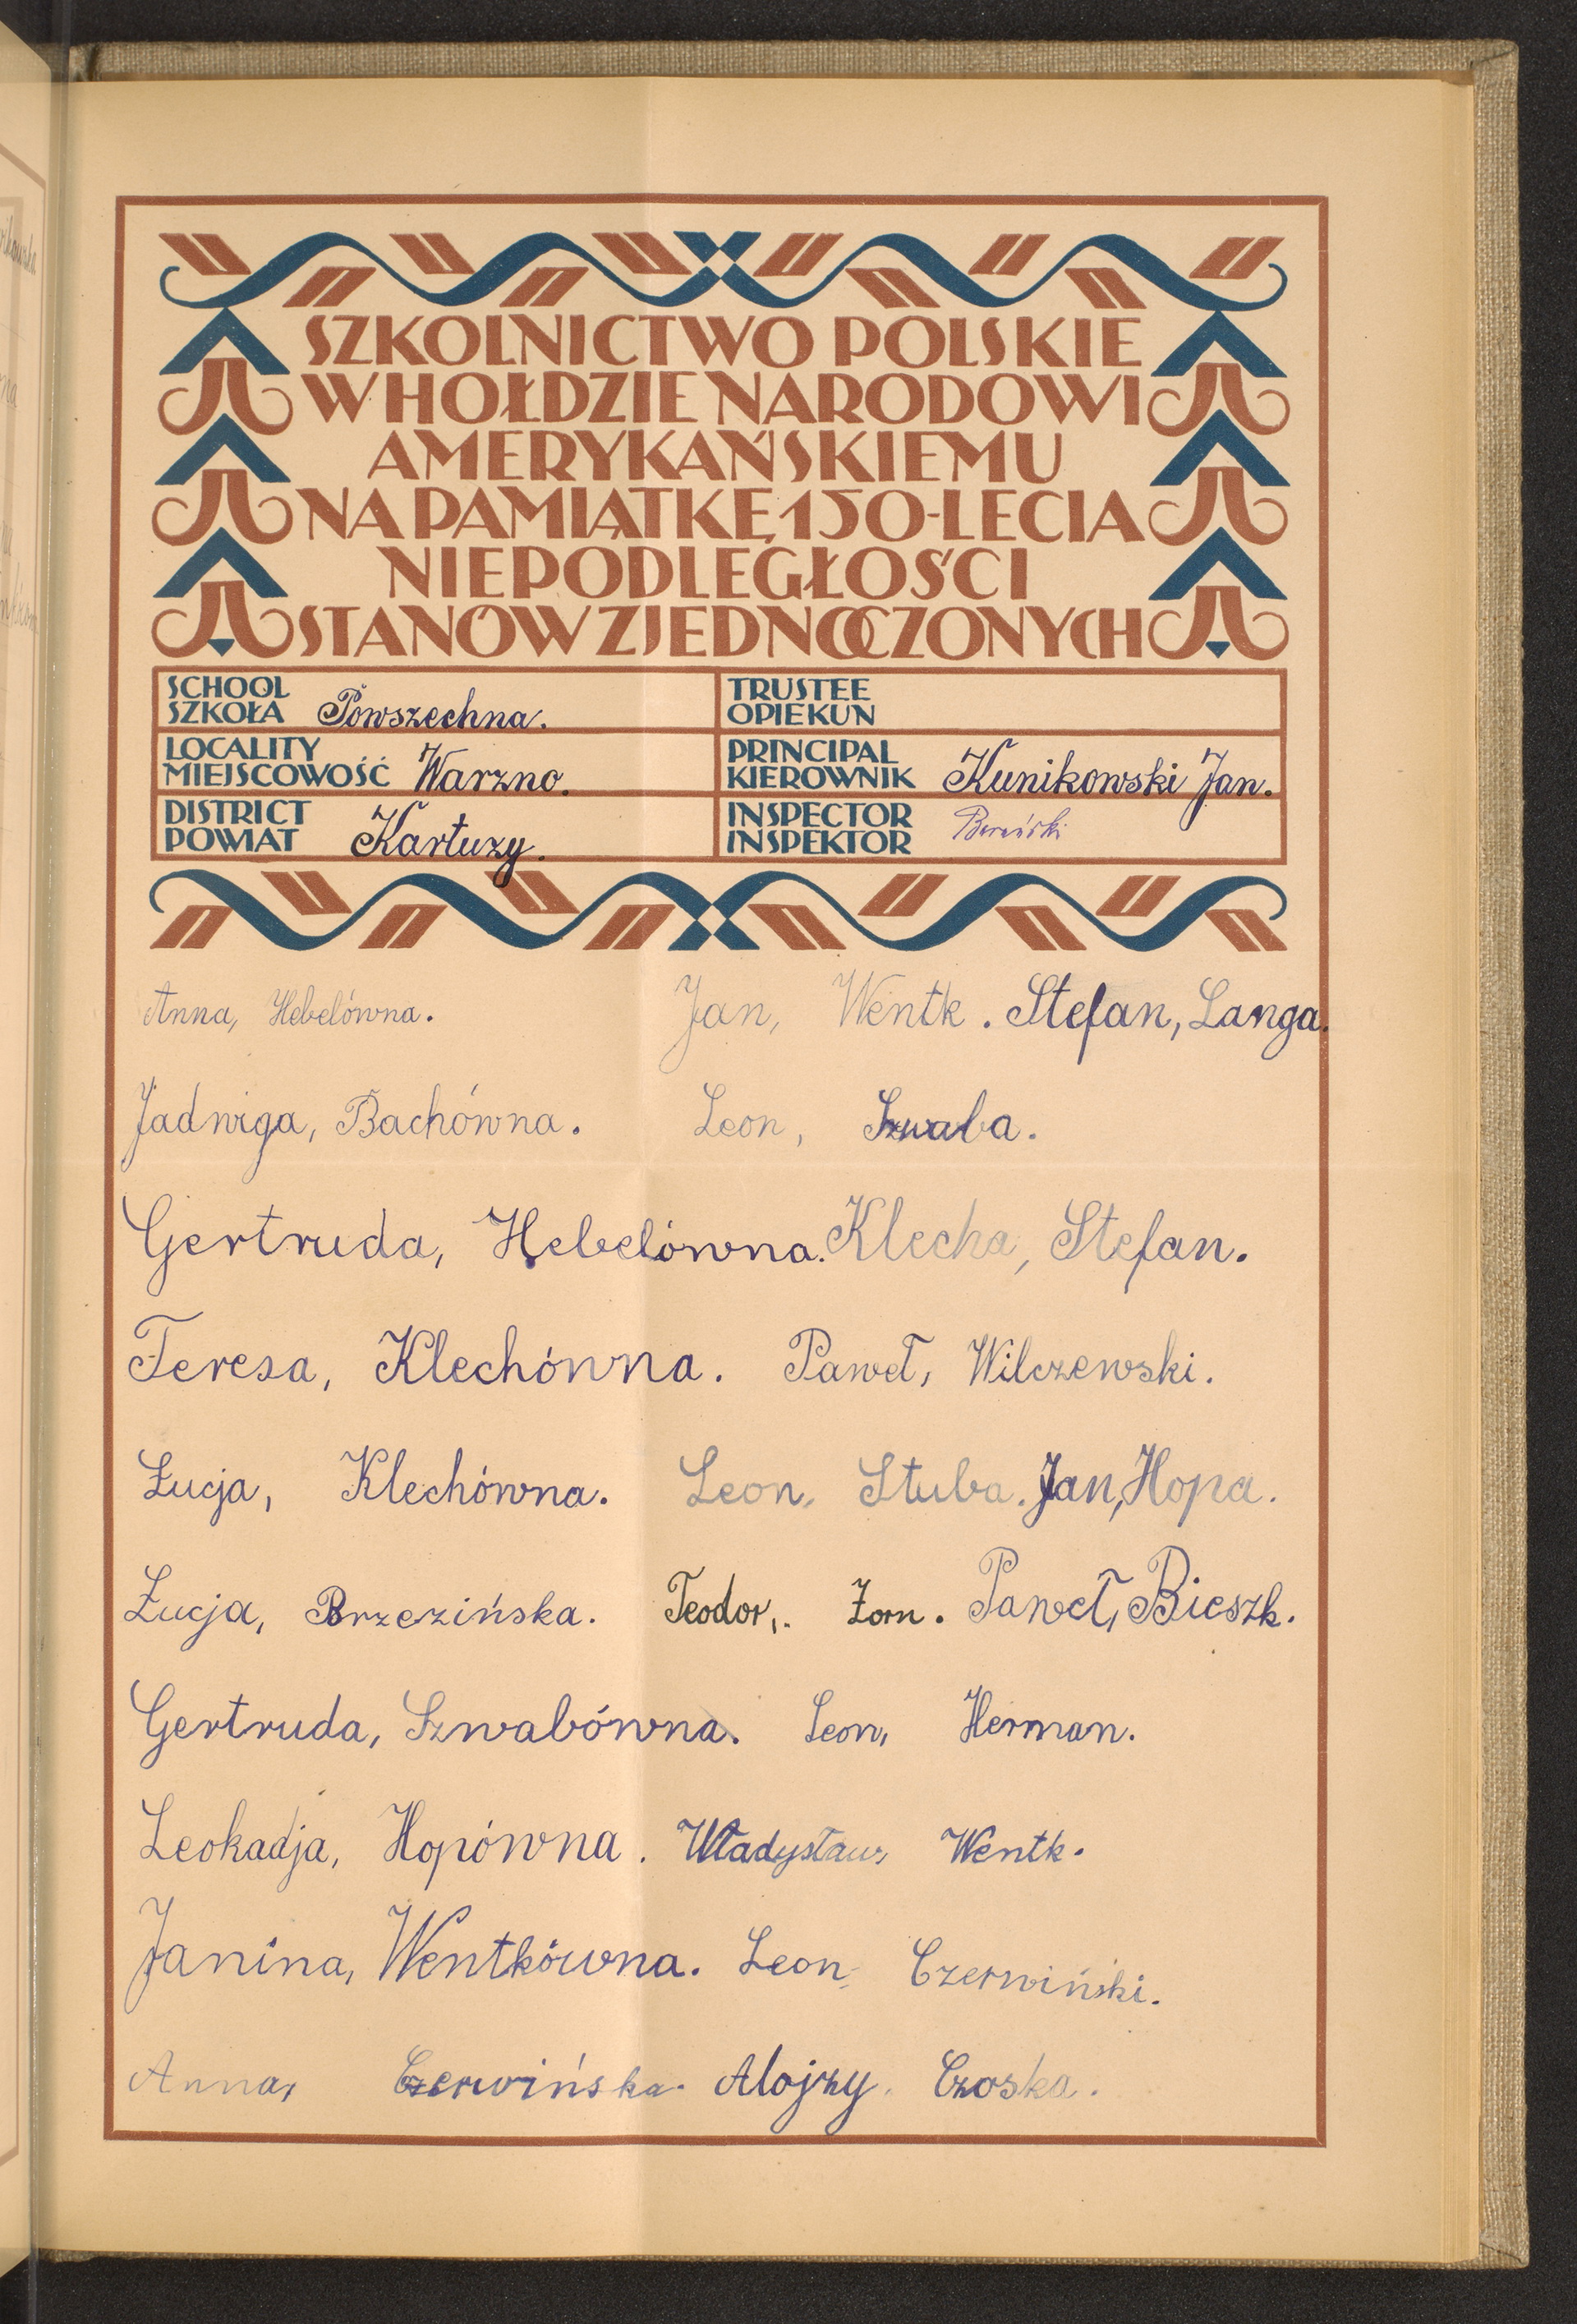 SZKOLNICTWO POLSKIE
W HOŁDZIE NARODOWI
AMERYKAŃSKIEMU
NA PAMIĄTKĘ 150-LECIA
NIEPODLEGŁOŚCI
STANÓW ZJEDNOCZONYCH
SCHOOL
SZKOŁA Powszechna.
TRUSTEE
OPIEKUN
LOCALITY
MIEJSCOWOŚĆ Warzno.
PRINCIPAL
KIEROWNIK Kunikowski Jan.
DISTRICT
POWIAT Kartuzy.
INSPECTOR
INSPEKTOR
Anna, Hebelówna. Jan, Wentk. Stefan, Langa.
Jadwiga, Bachówna. Leon, Szwaba.
Gertruda, Hebelówna. Klecha, Stefan.
Teresa, Klechówna. Paweł, Wilczewski.
Łucja, Klechówna. Leon, Stuba. Jan, Hopa.
Łucja, Brzezińska. Teodor, Zorn. Paweł, Bieszk.
Gertruda, Szwabówna. Leon, Herman.
Leokadja, Hopówna. Władysław, Wentk.
Janina, Wentkówna. Leon, Czerwiński.
Anna, Czerwińska. Alojzy, Czoska.